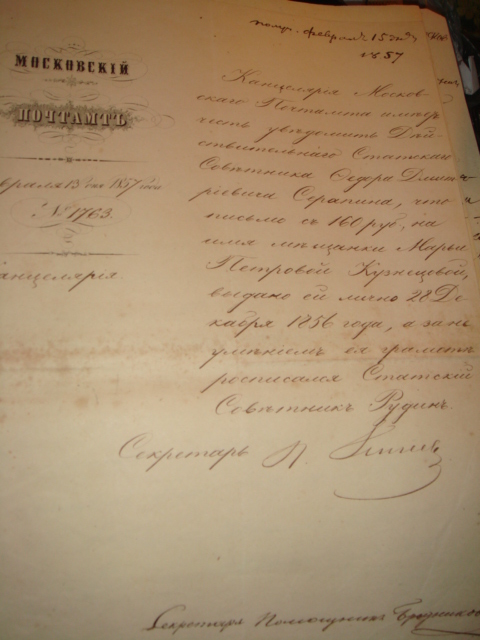 февраля 15 дня
1857
МОСКОВСКІЙ
ПОЧТАМТЪ
враля 13 дня 1857 года
№ 1763.
анцелярія
Канцелярія Москов-
скаго Почтамта имѣетъ
честь увѣдомить Дѣй-
ствительнаго Статскаго
Совѣтника Ѳедора Дмит-
ріевича Серапина, что
письмо съ 160 руб, на
имя мѣщанки Марьи
Петровой Кузнецовой,
выдано ей лично 28 Де-
кабря 1856 года, а за не
умѣніемъ ея грамотѣ
росписался Статскій
Совѣтникъ Рудинъ.
Секретарь
Секретарь Помощникъ